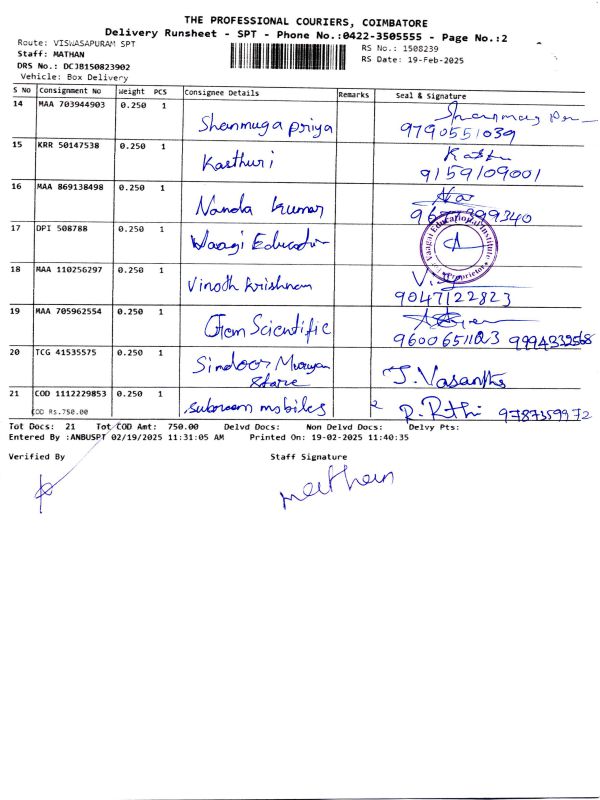 THE PROFESSIONAL COURIERS, COIMBATORE
Delivery Runsheet - SPT - Phone No.:0422-3505555 - Page No.:2
Route: VISWASAPURAM SPT
RS No.: 1508239
Staff: MATHAN
RS Date: 19-Feb-2025
DRS No.: DCJB150823902
Vehicle: Box Delivery
S No Consignment No Weight PCS Consignee Details Remarks Seal & Signature
14 MAA 703944903 0.250 1 Shanmuga priya
9790551039
15 KRR 50147538 0.250 1 Kasthuri
9159109001
16 MAA 869138498 0.250 1 Nanda kumar
17 DPI 508788 0.250 1 Vaagi Education
Vaagai Educational Institute
Proprietor
18 MAA 110256297 0.250 1 Vinoth krishnan
9047122823
19 MAA 705962554 0.250 1 Gem Scientific
20 TCG 41535575 0.250 1 Sindoor Murugan Store
J. Vasantha
21 COD 1112229853 0.250 1 mobiles
COD Rs.750.00
R. Rthi 9787559972
Tot Docs: 21 Tot COD Amt: 750.00 Delvd Docs: Non Delvd Docs: Delvy Pts:
Entered By :ANBUSPT 02/19/2025 11:31:05 AM Printed On: 19-02-2025 11:40:35
Verified By Staff Signature
mathan